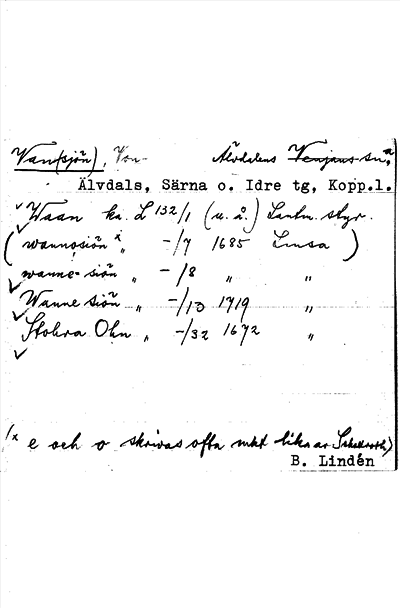 Van(sjön), Von- Älvdalens Venjans sn,
Älvdals, Särna o. Idre tg, Kopp.l.
Waan ka. L 132/1 (u. å.) Lantm. styr.
(wannosiön x " -/7 1685 Linsa)
wanne-siön " -/8 " "
Wanne siön " -/13 1719 "
Stohra Ohn " -/32 1672 "
/x e och o skrivas ofta mkt lika av
B. Lindén